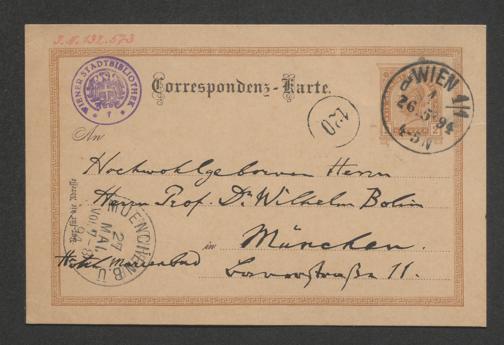 J.N. 132.573
WIENER STADTBIBLIOTHEK
Correspondenz-Karte.
WIEN 1/1
26.5.94
4-5N
120
An
Hochwohlgeboren Herrn
Herrn Prof. Dr Wilhelm Bolin
in München.
Hotel Marienbad
Barerstraße 11.
Nur für die Adresse
MUENCHEN B.U.
27
MAI